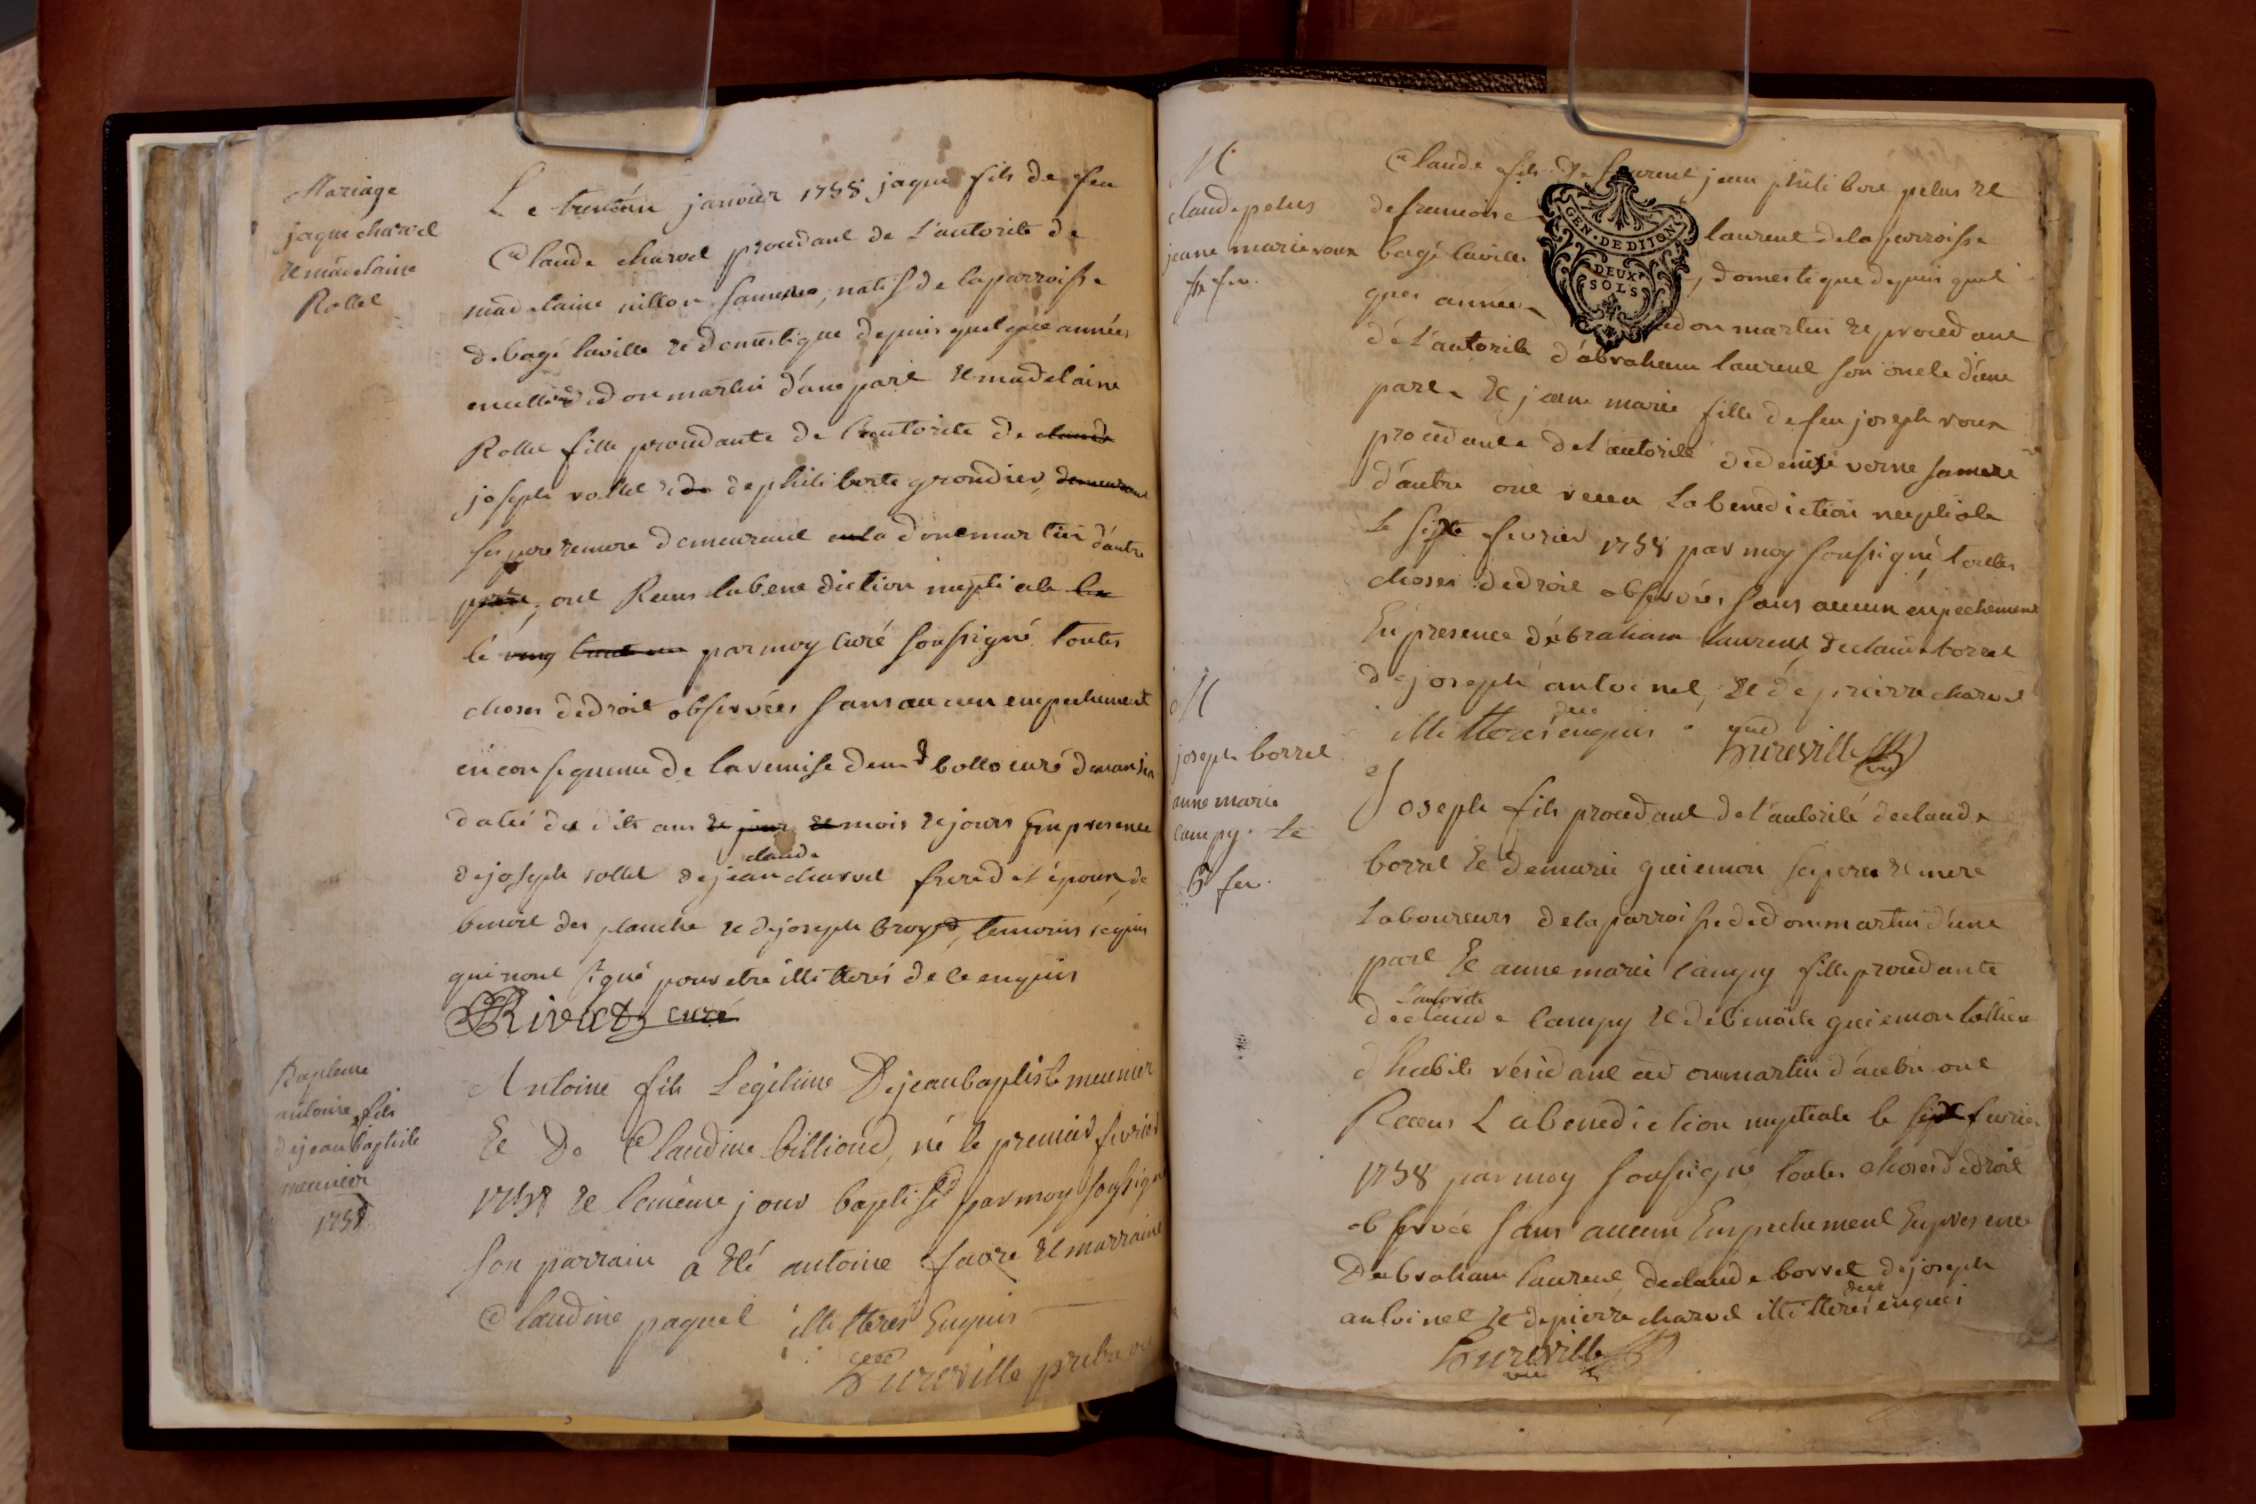 Mariage
jaque charvet
et madelaine
Rollet
Le trentun janvier 1758 jaque fils de feu
Claude charvet procedant de l'autorité de
madelaine nillon sa mere, natif de la parroisse
de bagé la ville et domestique depuis quelque années
dedonmartin d'une part et madelaine
Rollet fille procedante de l'autorité de claude
joseph rollet et de de philiberte grondier, demeurant
ses pere et mere demeurant a donmartin d'autre
part, ont Receus la benediction nuptiale
le par moy curé soussigné toutes
choses de droit observées sans aucun empechement
en consequence de la remise de curé de
datée des dits ans et jour et mois et jours En presence
de joseph rollet de jean claude charvet frere de l'époux, de
benoit des planche et de joseph broyer, temoins requis
qui n'ont signé pour etre illitterés de ce enquis
Rivat curé
Bapteme
antoine fils
de jean baptiste
meunier
1758
Antoine fils Legitime De jean baptiste meunier
Et De Claudine billioud, né le premier fevrier
1758 et le même jour baptisé par moy soussigné
son parrain a eté antoine favre et marraine
Claudine paquet illitterés Enquis
hureville
M
claude pelus
jeane marie roux
fev.
Claude fils De laurent jean philibert pelus et
de francoise laurent de la parroisse
bagé la ville, domestique depuis quel
ques années donmartin et procedant
de l'autorité d'abraham laurent son oncle d'une
part et jeane marie fille de feu joseph roux
procedante de l'autorité de denise verne sa mere
d'autre ont receu La benediction nuptiale
le sept fevrier 1758 par moy soussigné, toutes
choses de droit observées sans aucun enpechement
En presence d'abraham laurent, de claude borrel
de joseph antoinet, et de pierre charvet
illitterés de ce enquis
hureville
M
joseph borrel
anne marie
campy. le
7 fev.
Joseph fils procedant de l'autorité de claude
borrel et de marie guiemon ses pere et mere
Laboureurs de la parroisse de donmartin d'une
part et anne marie campy fille procedante
de l'autorité de claude campy et de benoite guiemon tallieu
d'habits résidant a donmartin d'autre ont
Receus La benediction nuptiale le sept fevrier
1758 par moy soussigné, toutes choses de droit
observée sans aucun Empechement En presence
D'abraham laurent, de claude borrel de joseph
antoinet et de pierre charvet illitterés de ce enquis
hureville
GEN·DE DIJON
DEUX
SOLS